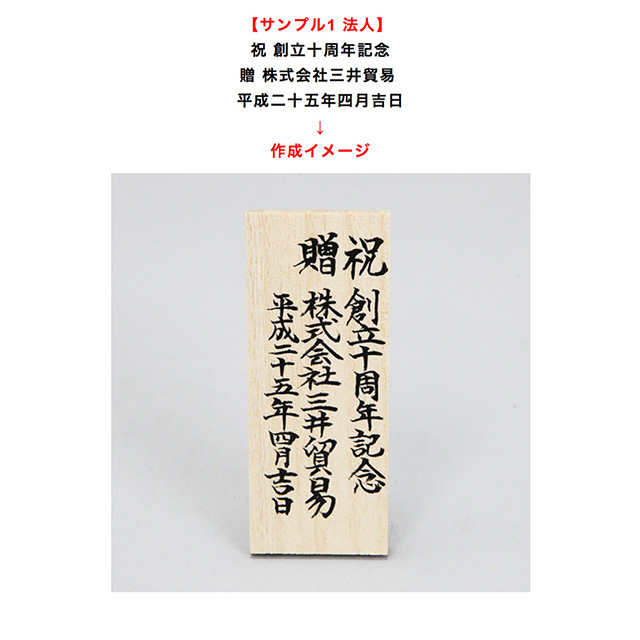 【サンプル1 法人】
祝 創立十周年記念
贈 株式会社三井貿易
平成二十五年四月吉日
↓
作成イメージ
祝 創立十周年記念
贈 株式会社三井貿易
平成二十五年四月吉日